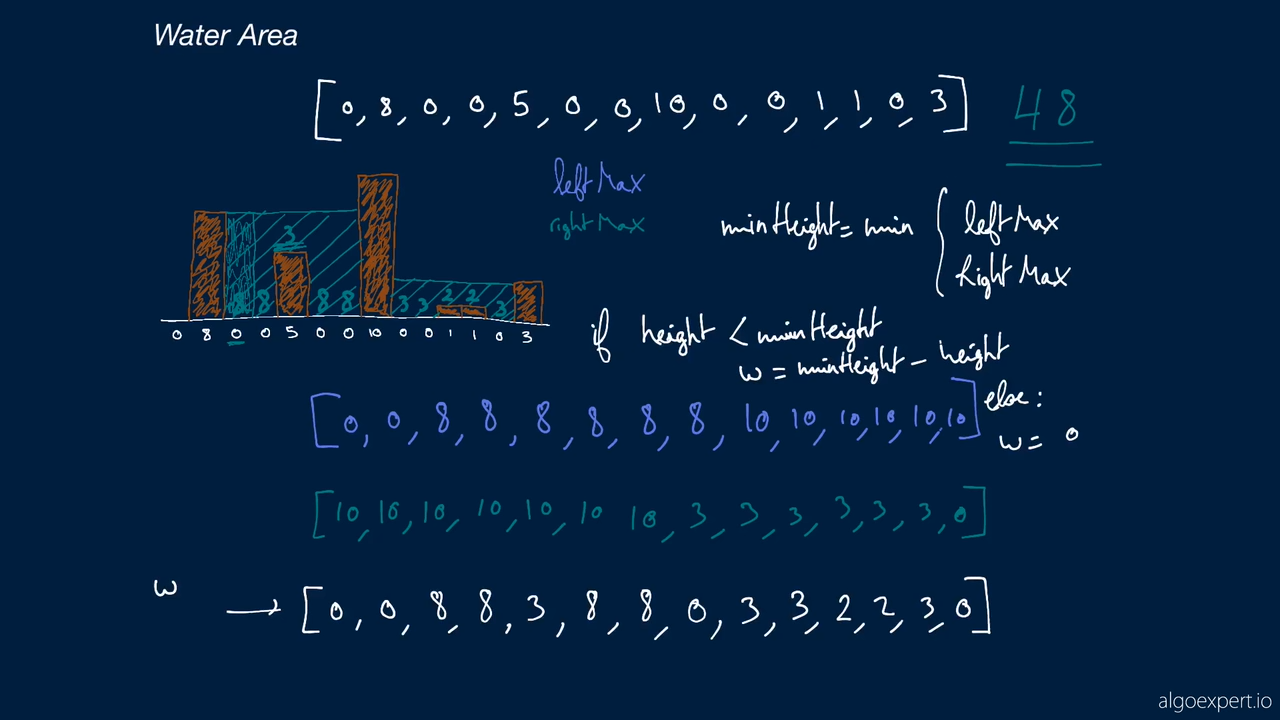 Water Area
[0, 8, 0, 0, 5, 0, 0, 10, 0, 0, 1, 1, 0, 3]
48
leftMax
rightMax
minHeight = min { leftMax
rightMax
3
8 8 8 8 3 3 2 2 3
0 8 0 0 5 0 0 10 0 0 1 1 0 3
if height < minHeight
w = minHeight - height
else:
w = 0
[0, 0, 8, 8, 8, 8, 8, 8, 10, 10, 10, 10, 10, 10]
[10, 10, 10, 10, 10, 10 10, 3, 3, 3, 3, 3, 3, 0]
w → [0, 0, 8, 8, 3, 8, 8, 0, 3, 3, 2, 2, 3, 0]
algoexpert.io